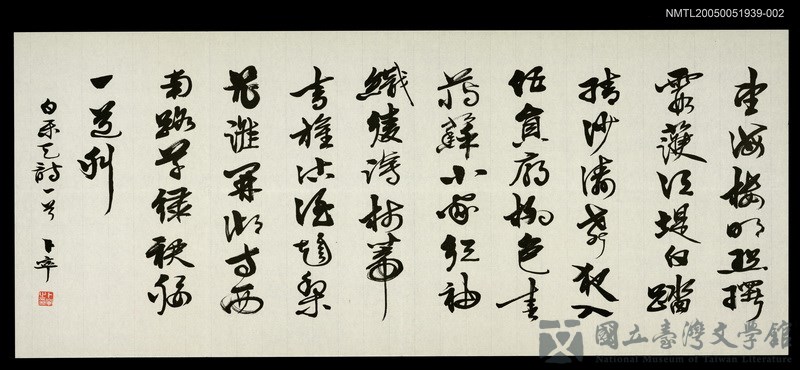 NMTL20050051939-002
望海樓明照曙
霞護江堤白踏
晴沙濤聲夜入
伍員廟柳色春
藏蘇小家紅袖
織綾誇柿蒂
青旗沽酒趁梨
花誰開湖寺西
南路草綠裙腰
一道斜
白樂天詩一首
國立臺灣文學館
National Museum of Taiwan Literature